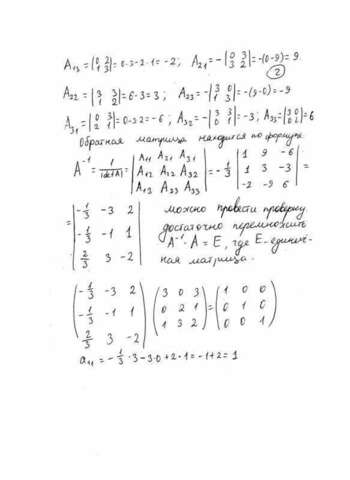 A₁₃ = |0 2; 1 3| = 0·3-2·1 = -2; A₂₁ = -|0 3; 3 2| = -(0-9) = 9.
2
A₂₂ = |3 3; 1 2| = 6-3 = 3; A₂₃ = -|3 0; 1 3| = -(9-0) = -9
A₃₁ = |0 3; 2 1| = 0-3·2 = -6; A₃₂ = -|3 3; 0 1| = -3; A₃₃ = |3 0; 0 2| = 6
Обратная матрица находится по формуле
A⁻¹ = 1/|detA| = |A₁₁ A₂₁ A₃₁; A₁₂ A₁₂ A₃₂; A₁₃ A₂₃ A₃₃| = -1/3 |1 9 -6; 1 3 -3; -2 -9 6| =
= |-1/3 -3 2; -1/3 -1 1; 2/3 3 -2| можно провести проверку
достаточно перемножить
A⁻¹·A = E, где E - единич-
ная матрица.
(-1/3 -3 2; -1/3 -1 1; 2/3 3 -2) (3 0 3; 0 2 1; 1 3 2) = (1 0 0; 0 1 0; 0 0 1)
a₁₁ = -1/3·3-3·0+2·1 = -1+2 = 1